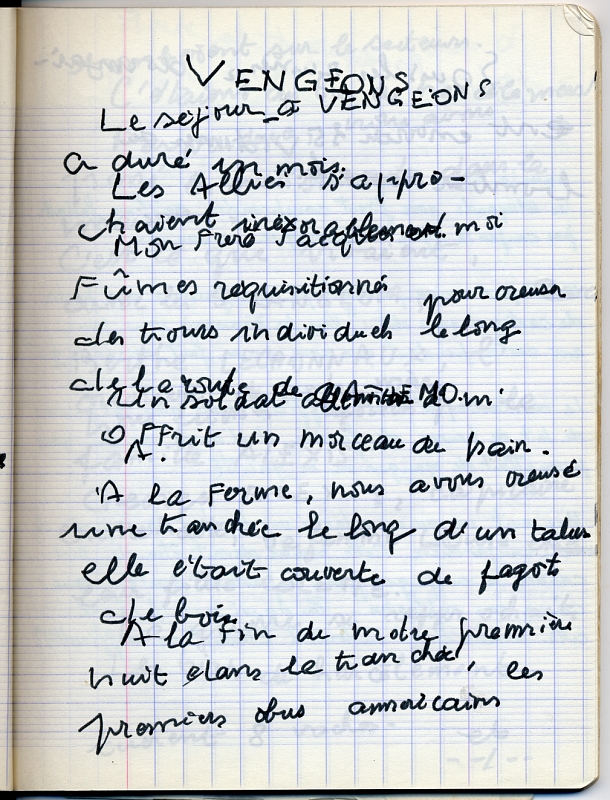 VENGEONS
Le séjour à VENGEONS
a duré un mois.
Les Alliés s'appro-
chaient inexorablement.
Mon Frère Jacques et moi
Fûmes requisitionné pour creuser
des trous individuels le long
de la route de
Un soldat allemand m'
OFFrit un morceau de pain.
A.
A la Ferme, nous avons creusé
une tranchée le long d'un talus
elle était couverte de fagots
de bois
A la Fin de notre première
nuit dans la tranchée, les
premiers obus americains